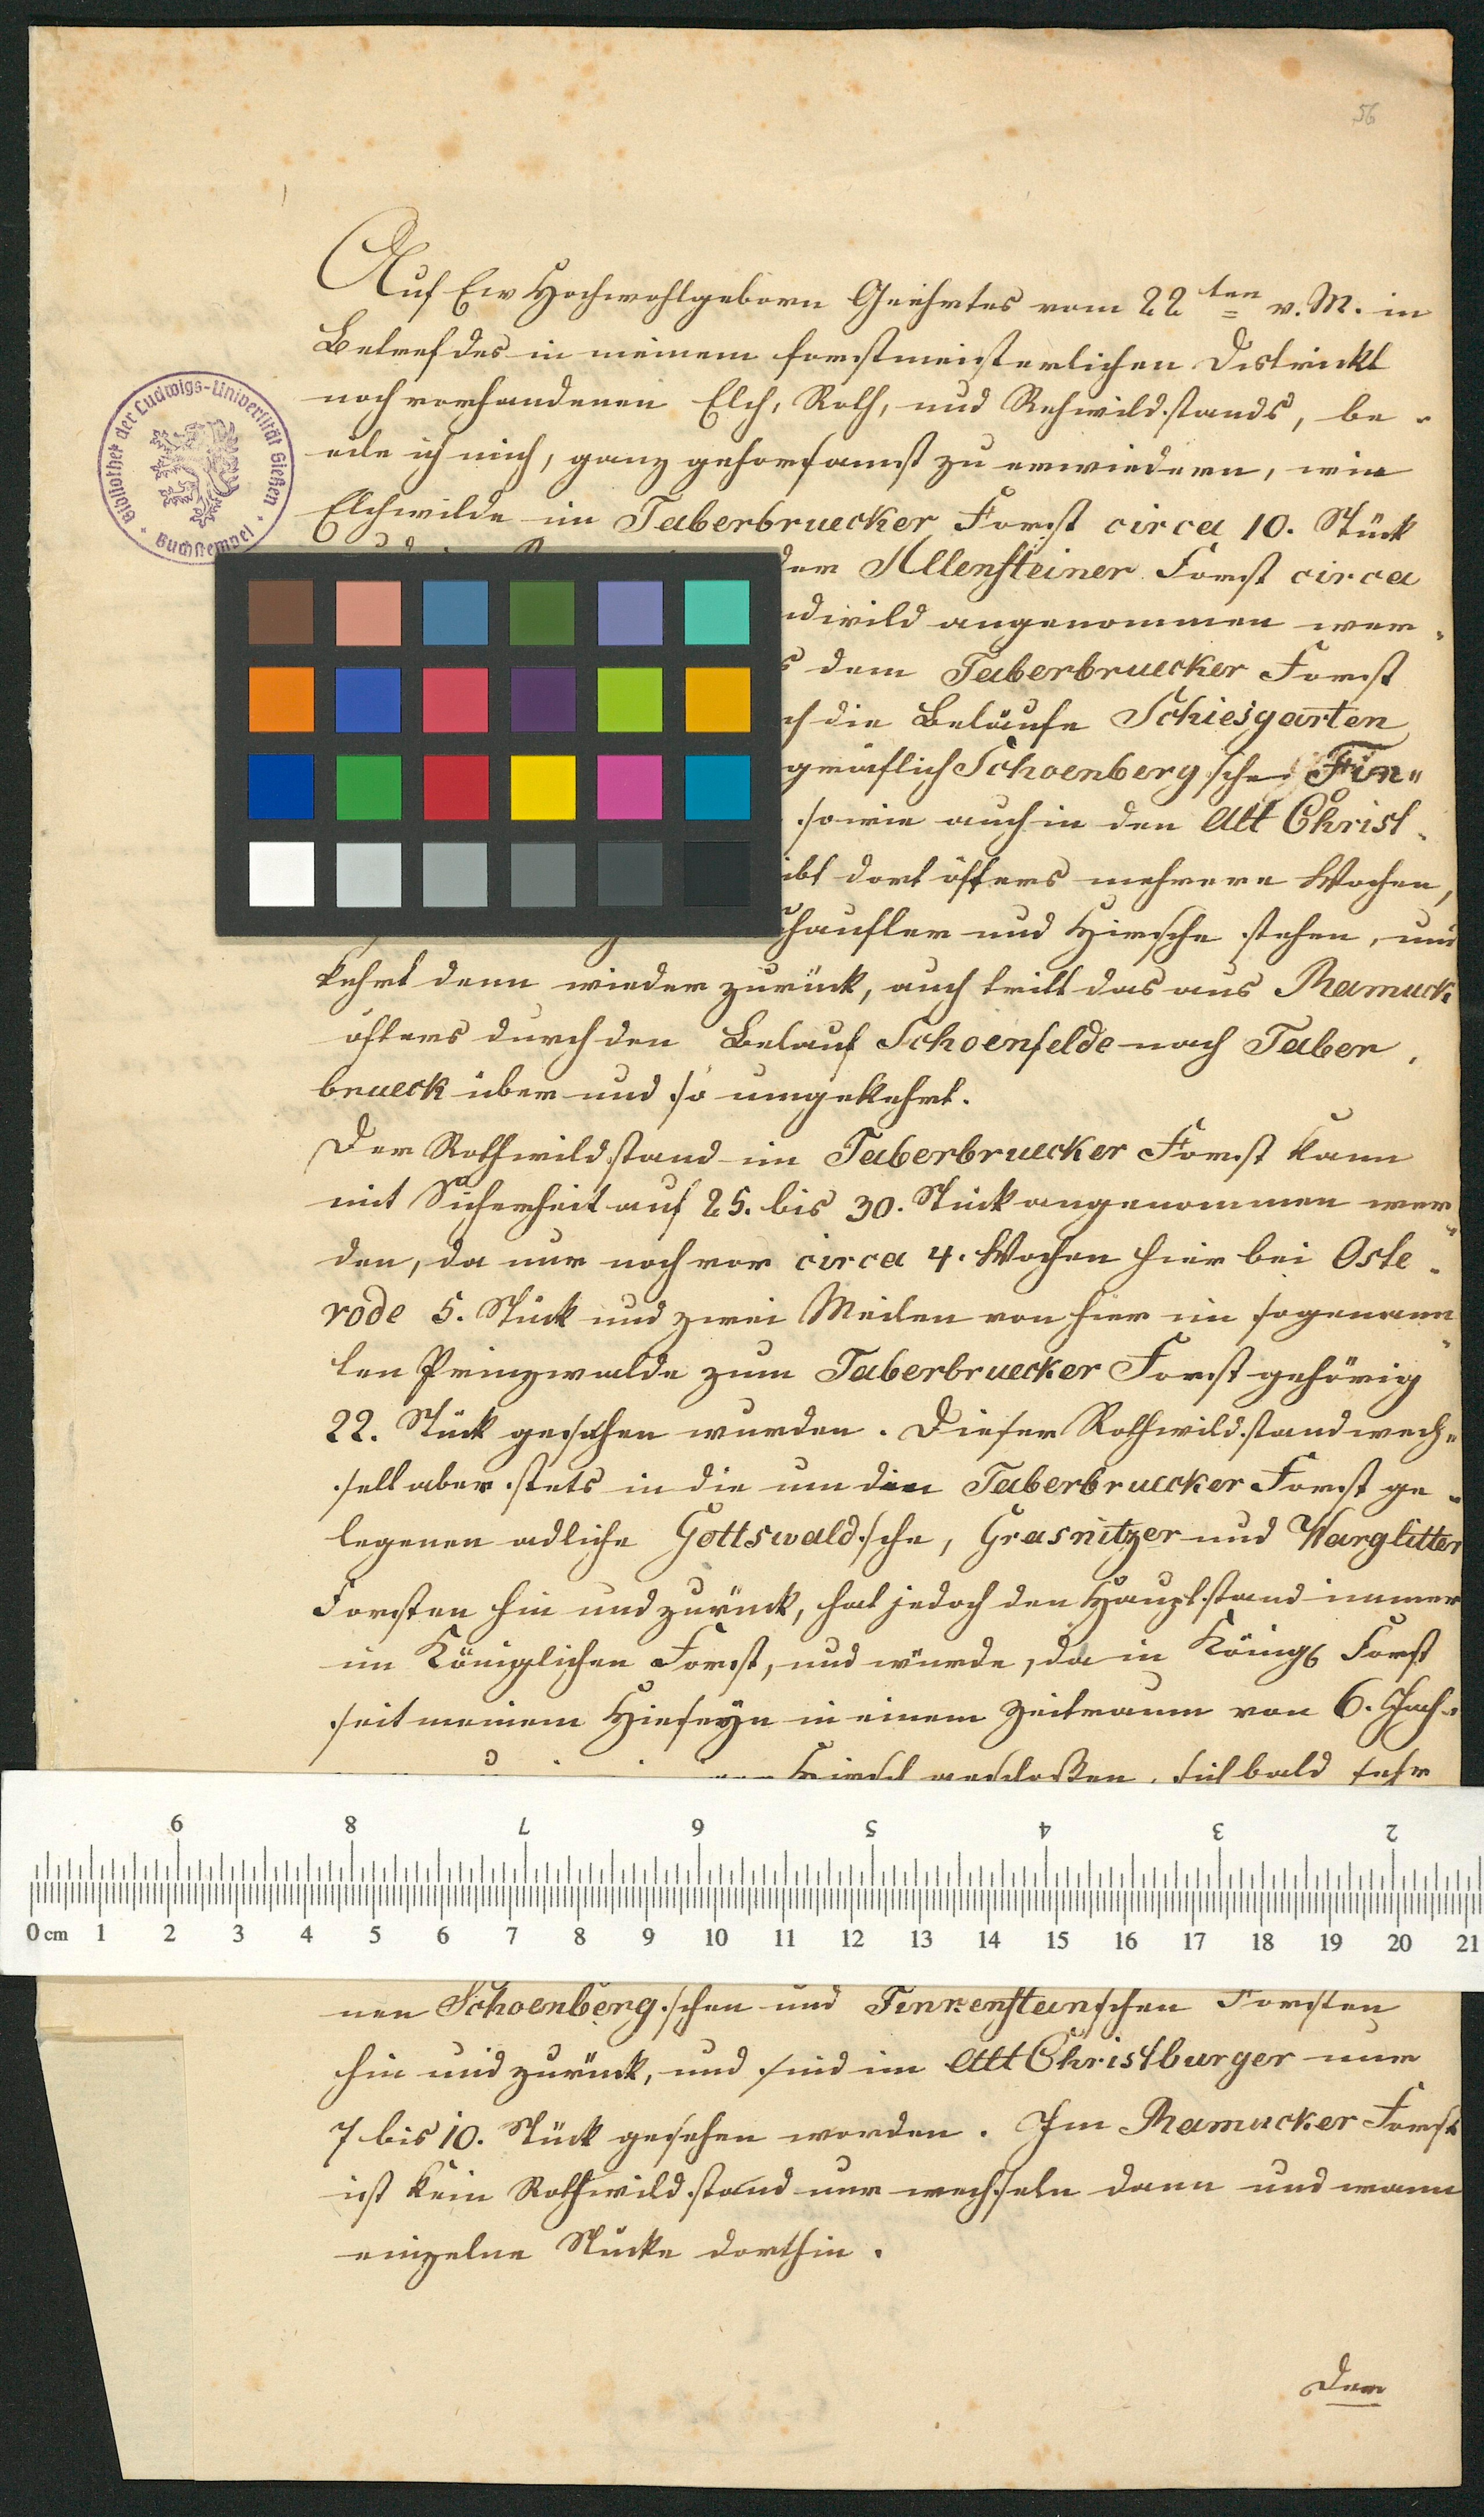 56
Auf Ew Hochwohlgeborn Geehrtes vom 22ten v. M. in
Betref des in meinem forstmeisterlichen Districkt
noch vorhandenen Elch, Roth, und Rehwildstands, be-
eile ich mich, ganz gehorsamst zu erwiedern, wie
Elchwilde im Taberbruecker Forst circa 10. Stück
der Allensteiner Forst circa
ndwild angenommen wer-
s dem Taberbruecker Forst
ch die Beläufe Schiesgarten
gräflich Schoenberg'sche Fin"
sowie auch in den Alt Christ-
ibt dort öfters mehrere Wochen,
chaufler und Hirsche stehen, und
kehrt denn wieder zurück, auch tritt das aus Ramuck
öfters durch den Belauf Schoenfelde nach Taber-
brueck über und so umgekehrt.
Der Rothwildstand im Taberbruecker Forst kann
mit Sicherheit auf 25. bis 30. Stück angenommen wer-
den, da nur noch vor circa 4. Wochen hier bei Oste-
rode 5. Stück und zwei Meilen von hier im sogenann-
ten Prinzwalde zum Taberbruecker Forst gehörig
22. Stück gesehen wurden. Dieser Rothwildstand wech=
selt aber stets in die um den Taberbruecker Forst ge-
legenen adliche Gottswald'sche, Grasnitzer und Warglitter
Forsten hin und zurück, hat jedoch den Hauptstand immer
im Königlichen Forst, und würde, da in Königl Forst
seit meinem Hieseyn in einem Zeitraum von 6. Jah-
Hirsch geschoßen, sich bald sehr
nen Schoenberg'schen und Finkensteinschen Forsten
hin und zurück, und sind im Alt Christburger nur
7 bis 10. Stück gesehen worden. Im Ramucker Forst
ist kein Rothwildstand nur wechseln dann und wann
einzelne Stücke dorthin.
Der
Bibliothek der Ludwigs-Universität Gießen
Buchstempel
9 8 7 6 5 4 3 2
0 cm 1 2 3 4 5 6 7 8 9 10 11 12 13 14 15 16 17 18 19 20 21